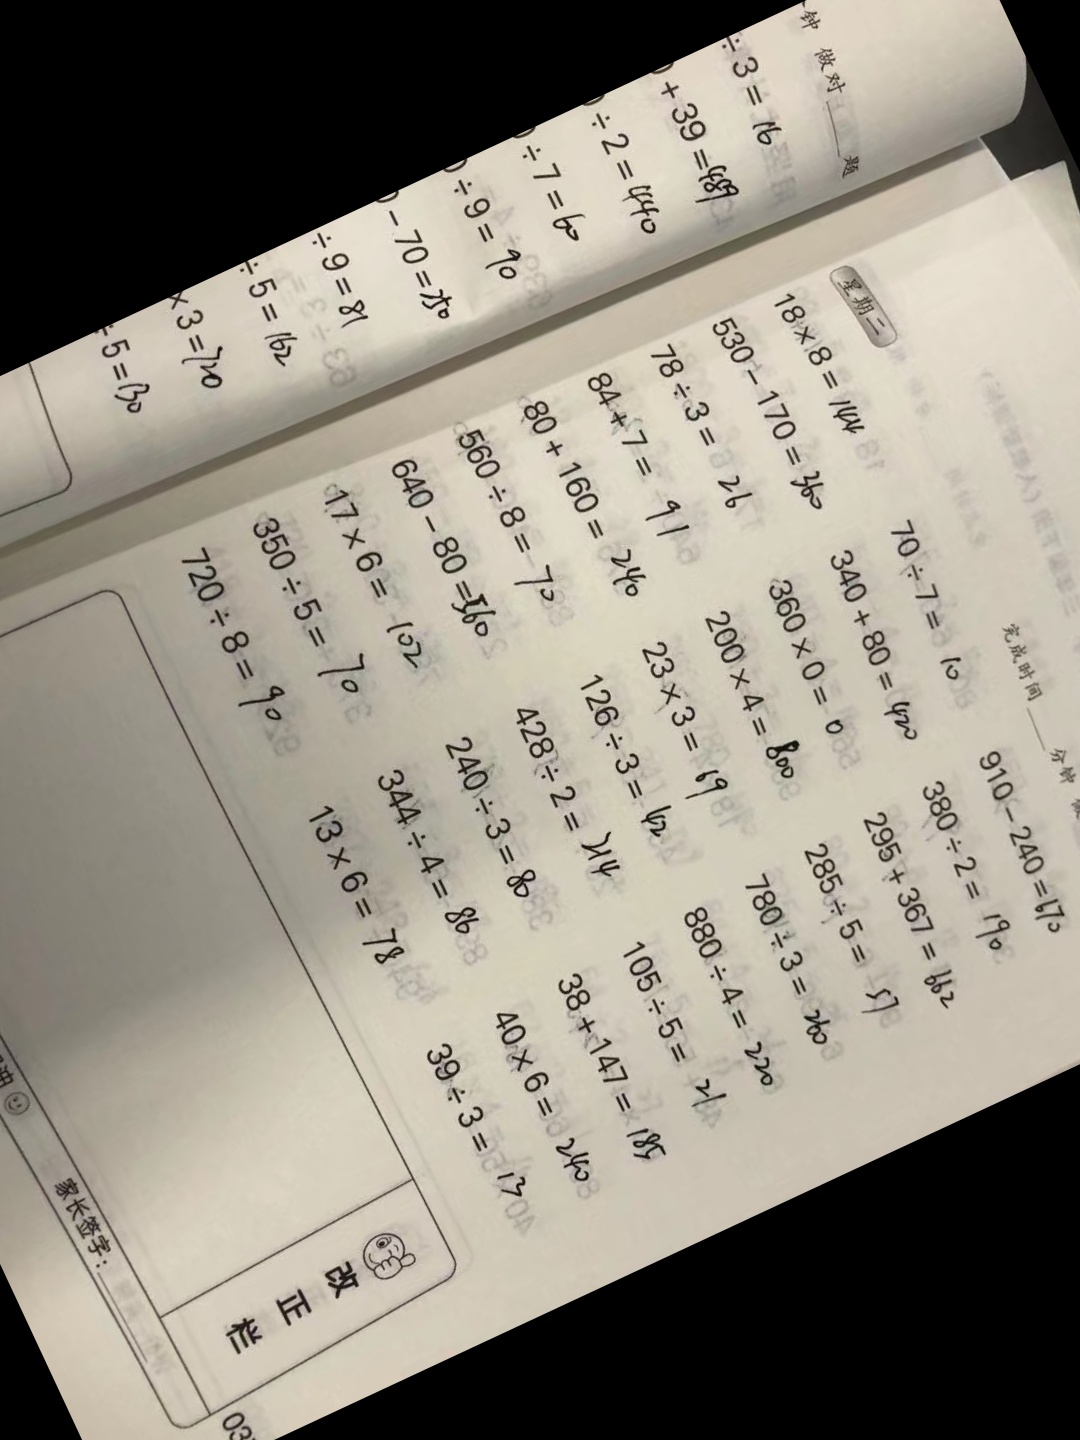 钟 做对____题
÷3=16
+39=489
÷2=440
÷7=60
÷9=90
-70=
÷9=81
÷5=162
×3=720
÷5=130
星期二
完成时间____分钟
18×8=144
530-170=360
78÷3=26
84+7=91
80+160=240
560÷8=70
640-80=560
17×6=102
350÷5=70
720÷8=90
70÷7=10
340+80=420
360×0=0
200×4=800
23×3=69
126÷3=42
428÷2=214
240÷3=80
344÷4=86
13×6=78
910-240=670
380÷2=190
295+367=662
285÷5=57
780÷3=260
880÷4=220
105÷5=21
38+147=185
40×6=240
39÷3=13
改正栏
家长签字:
03